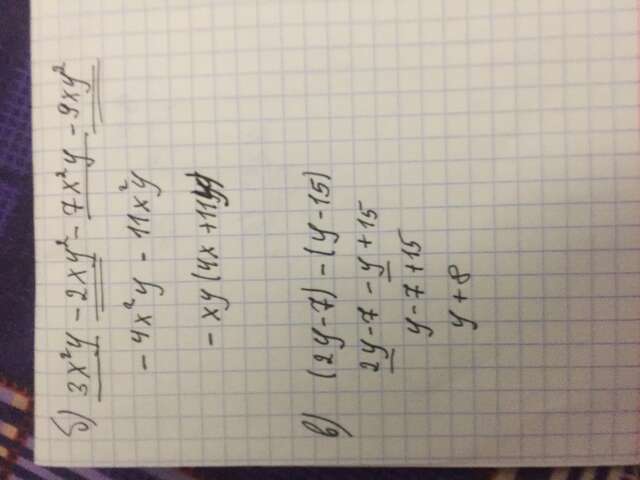 б) 3x²y - 2xy² - 7x²y - 9xy²
- 4x²y - 11x²y
- xy (4x + 11y)
в) (2y - 7) - (y - 15)
2y - 7 - y + 15
y - 7 + 15
y + 8